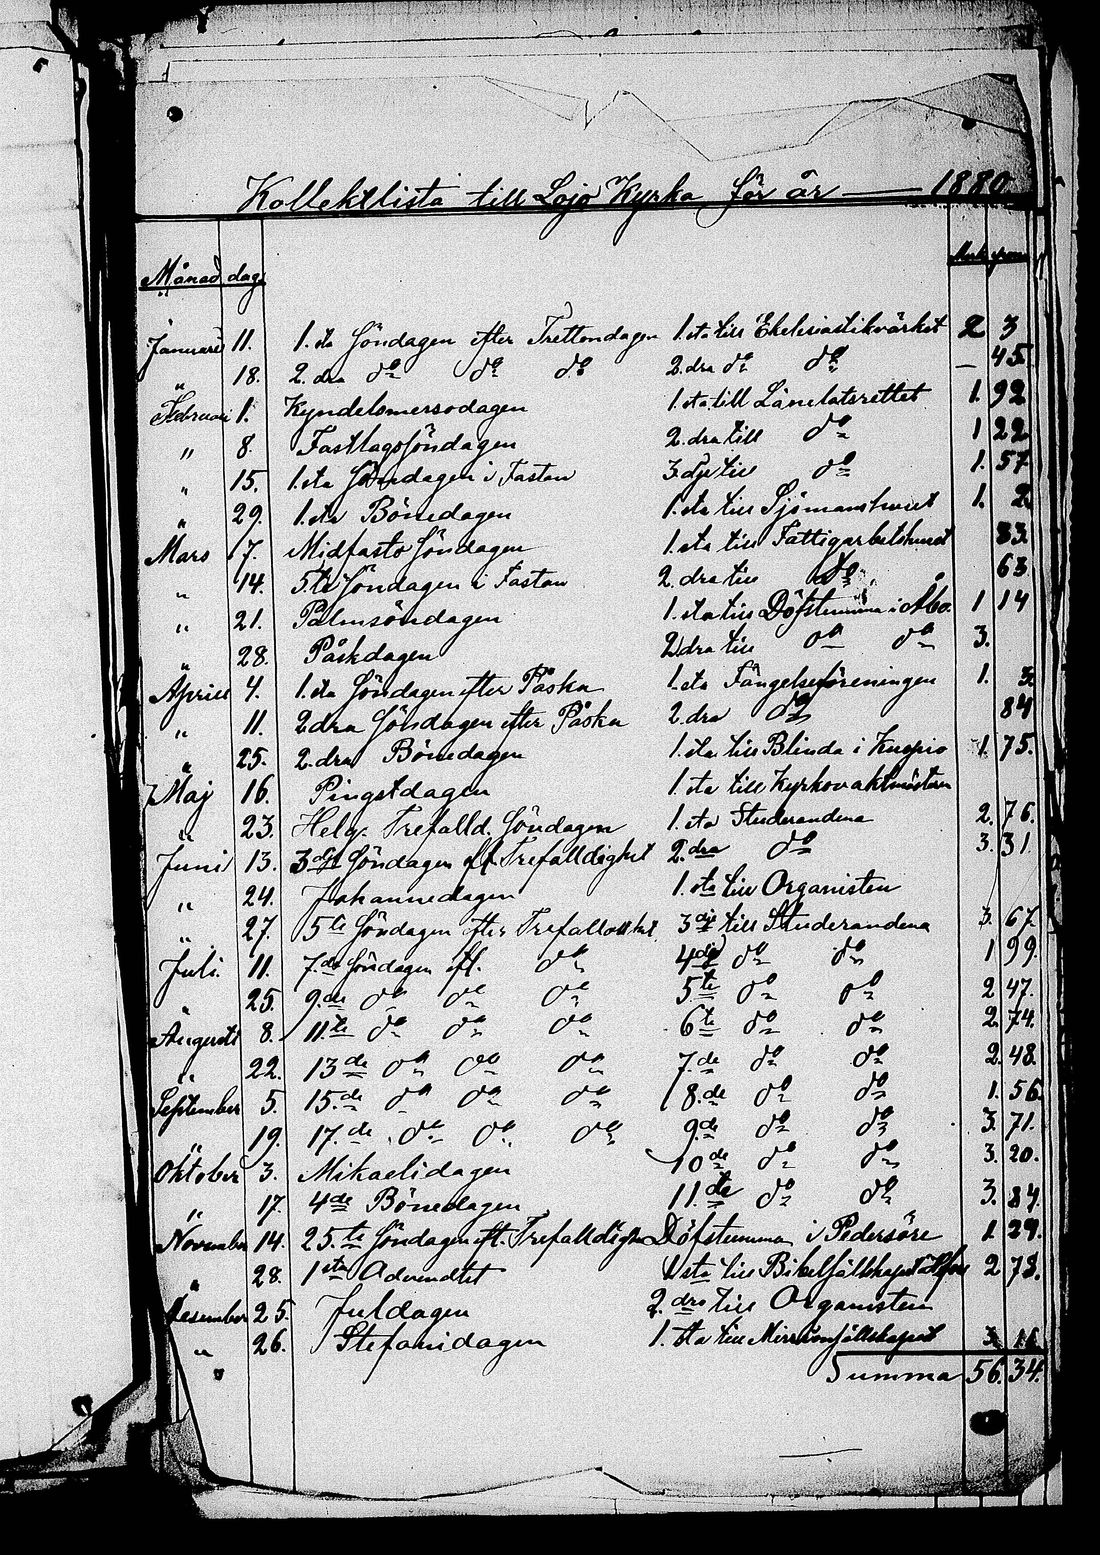 Kollektlista till Lojo Kyrka för år — 1880
Månad dag. Mark penni
Januari 11. 1.sta Söndagen efter Trettondagen 1.sta till Ekelsiastikvärket 2 3
" 18. 2.dra do do do 2.dra do do — 45.
Februari 1. Kyndelsmersodagen 1.sta till Länelatsrettet 1. 92
" 8. Fastlagssöndagen 2.dra till do 1 22
" 15. 1.sta Söndagen i Fastan 3dje till do 1. 57
" 29. 1.sta Bönedagen 1.sta till Sjömanshuset 1. 2.
Mars 7. Midfasto Söndagen 1.sta till Fattigarbetshuset 83.
" 14. 5.te Söndagen i Fastan 2.dra till do 63
" 21. Palmsöndagen 1.sta till Döfstumma i Åbo. 1 14
" 28. Påskdagen 2dra till do do 3.
April 4. 1.sta Söndagen efter Påska 1.sta Fängelseföreningen 1. 3.
" 11. 2dra Söndagen efter Påska 2.dra do 84
" 25. 2.dra Bönedagen 1.sta till Blinda i Kuopio 1. 75.
Maj 16. Pingstdagen 1.sta till Kyrkovaktmästaren
" 23. Helg. Trefalld. Söndagen 1.sta Studerandena 2. 76.
Juni 13. 3dje Söndagen eft. Trefalldighet 2.dra do 3. 31
" 24. Johannedagen 1.sta till Organisten
" 27. 5te Söndagen efter Trefalldighet. 3dje till Studerandena 3. 67.
Juli. 11. 7.de Söndagen eft. do 4de do do 1 99.
" 25. 9.de do do do 5te do do 2 47.
Augusti 8. 11.te do do do 6te do do 2. 74.
" 22. 13de do do do 7.de do do 2. 48.
September 5. 15.de do do do 8.de do do 1. 56.
19. 17.de do do do 9.de do do 3. 71.
Oktober 3. Mikaelidagen 10de do do 3. 20.
" 17. 4de Bönedagen 11.te do do 3. 84.
November 14. 25.te Söndagen eft. Trefalldighe Döfstumma i Pedersöre 1. 29.
" 28. 1sta Advendtet 1sta till Bibelsällskapet 2 78.
Desember 25. Juldagen 2.dra till Organisten
" 26. Stefanidagen 1.sta till Missionsällskapet 3 16
Summa 56. 34.